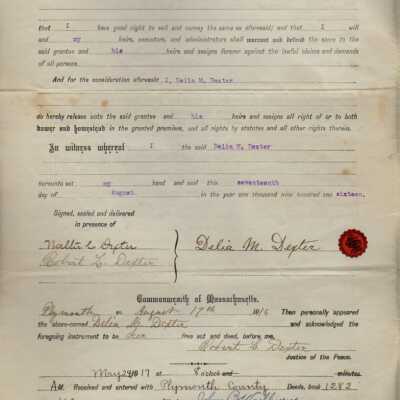 that I have good right to sell and convey the same as aforesaid; and that I will
and my heirs, executors, and administrators shall warrant and defend the same to the
said grantee and his heirs and assigns forever against the lawful claims and demands
of all persons
And for the consideration aforesaid I, Delia M. Dexter
do hereby release unto the said grantee and his heirs and assigns all right of or to both
dower and homestead in the granted premises, and all rights by statutes and all other rights therein.
In witness whereof I the said Delia M. Dexter
hereunto set my hand and seal this seventeenth
day of August in the year one thousand nine hundred and sixteen.
Signed, sealed and delivered
in presence of
Delia M. Dexter
Robert L. Dexter
Commonwealth of Massachusetts.
Plymouth August 17th 1916 Then personally appeared
the above-named Delia M. Dexter and acknowledged the
foregoing instrument to be her free act and deed, before me,
Robert L. Dexter
Justice of the Peace.
May 1917 o'clock and minutes
A.M. Received and entered with Plymouth County Deeds, book 1282